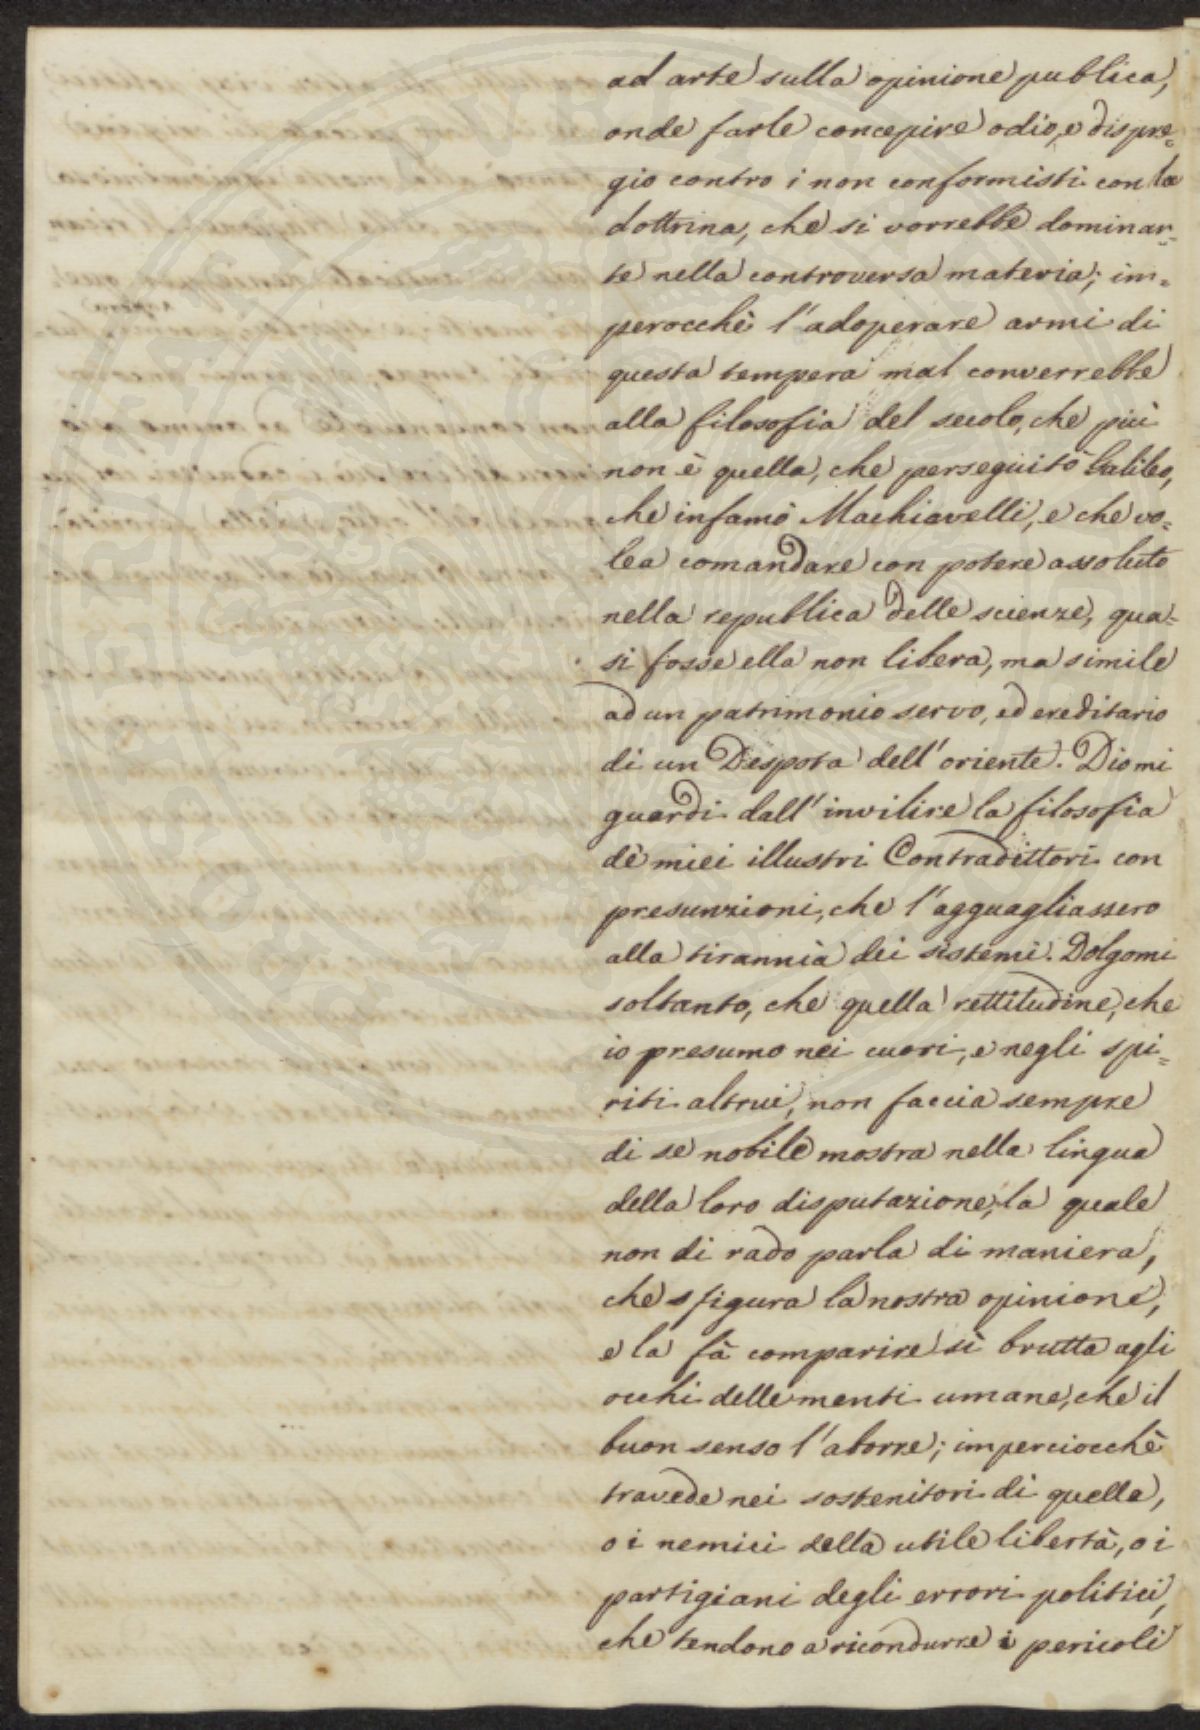 ad arte sulla opinione publica,
onde farle concepire odio, e dispre=
gio contro i non conformisti con la
dottrina, che si vorrebbe dominan=
te nella controversa materia; im=
perocchè l'adoperare armi di
questa tempera mal converrebbe
alla filosofia del secolo, che più
non è quella, che perseguitò Galileo,
che infamò Machiavelli, e che vo=
lea comandare con potere assoluto
nella republica delle scienze, qua=
si fosse ella non libera, ma simile
ad un patrimonio servo, ed ereditario
di un Despota dell'oriente. Dio mi
guardi dall'invilire la filosofia
dè miei illustri Contradittori con
presunzioni, che l'agguagliassero
alla tirannia dei sistemi. Dolgomi
soltanto, che quella rettitudine, che
io presumo nei cuori, e negli spi=
riti altrui, non faccia sempre
di se nobile mostra nella lingua
della loro disputazione, la quale
non di rado parla di maniera,
che sfigura la nostra opinione,
e la fà comparire sì brutta agli
occhi delle menti umane, che il
buon senso l'aborre; imperciocchè
travede nei sostenitori di quella,
o i nemici della utile libertà, o i
partigiani degli errori politici,
che tendono a ricondurre i pericoli